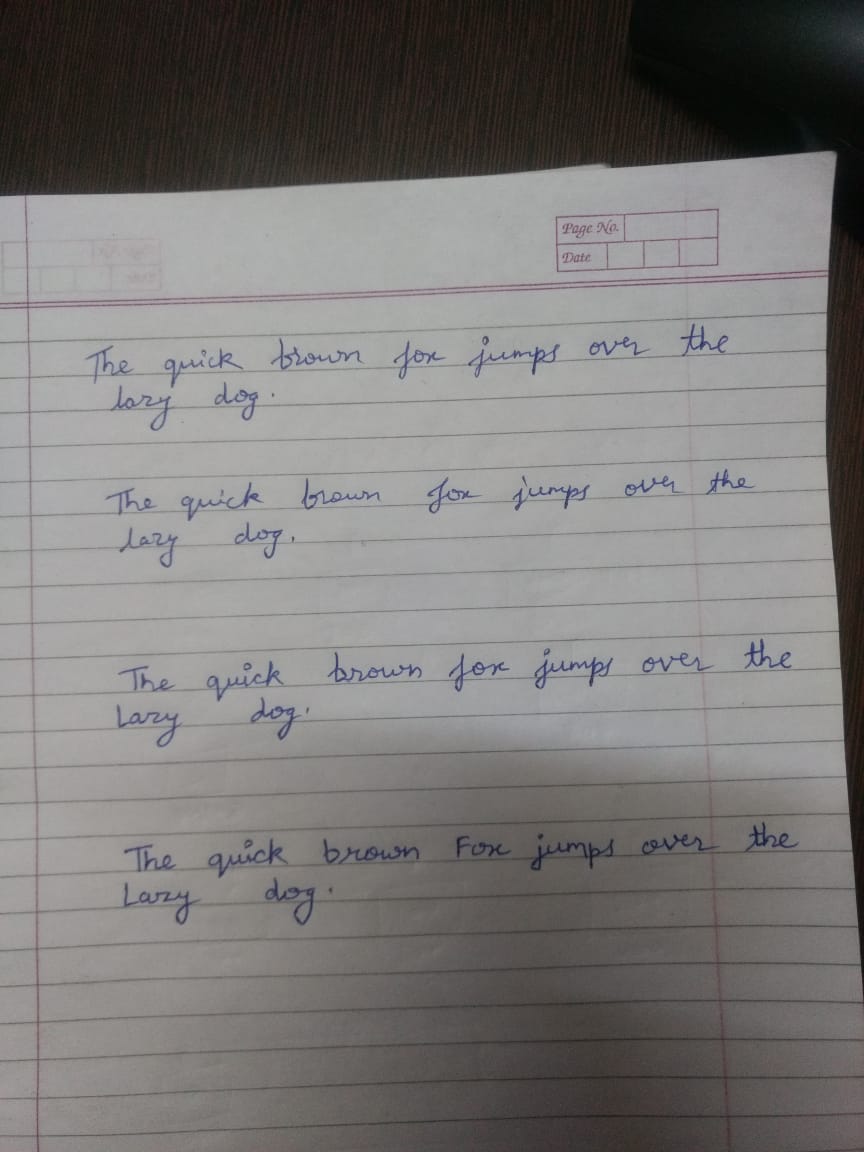 Page No.
Date
The quick brown fox jumps over the
lazy dog.
The quick brown fox jumps over the
lazy dog.
The quick brown fox jumps over the
Lazy dog.
The quick brown Fox jumps over the
Lazy dog.